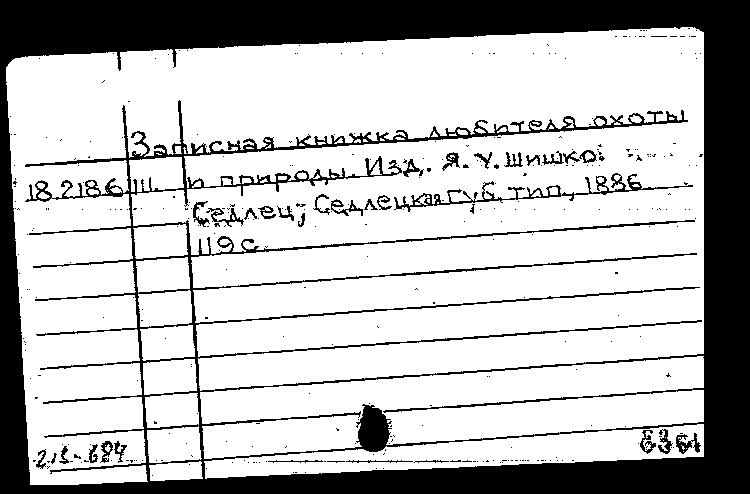 Записная книжка любителя охоты
18.218.6.III. и природы. Изд. Я. У. Шишко.
Седлец, Седлецкая губ. тип., 1886
119 с.
213-684